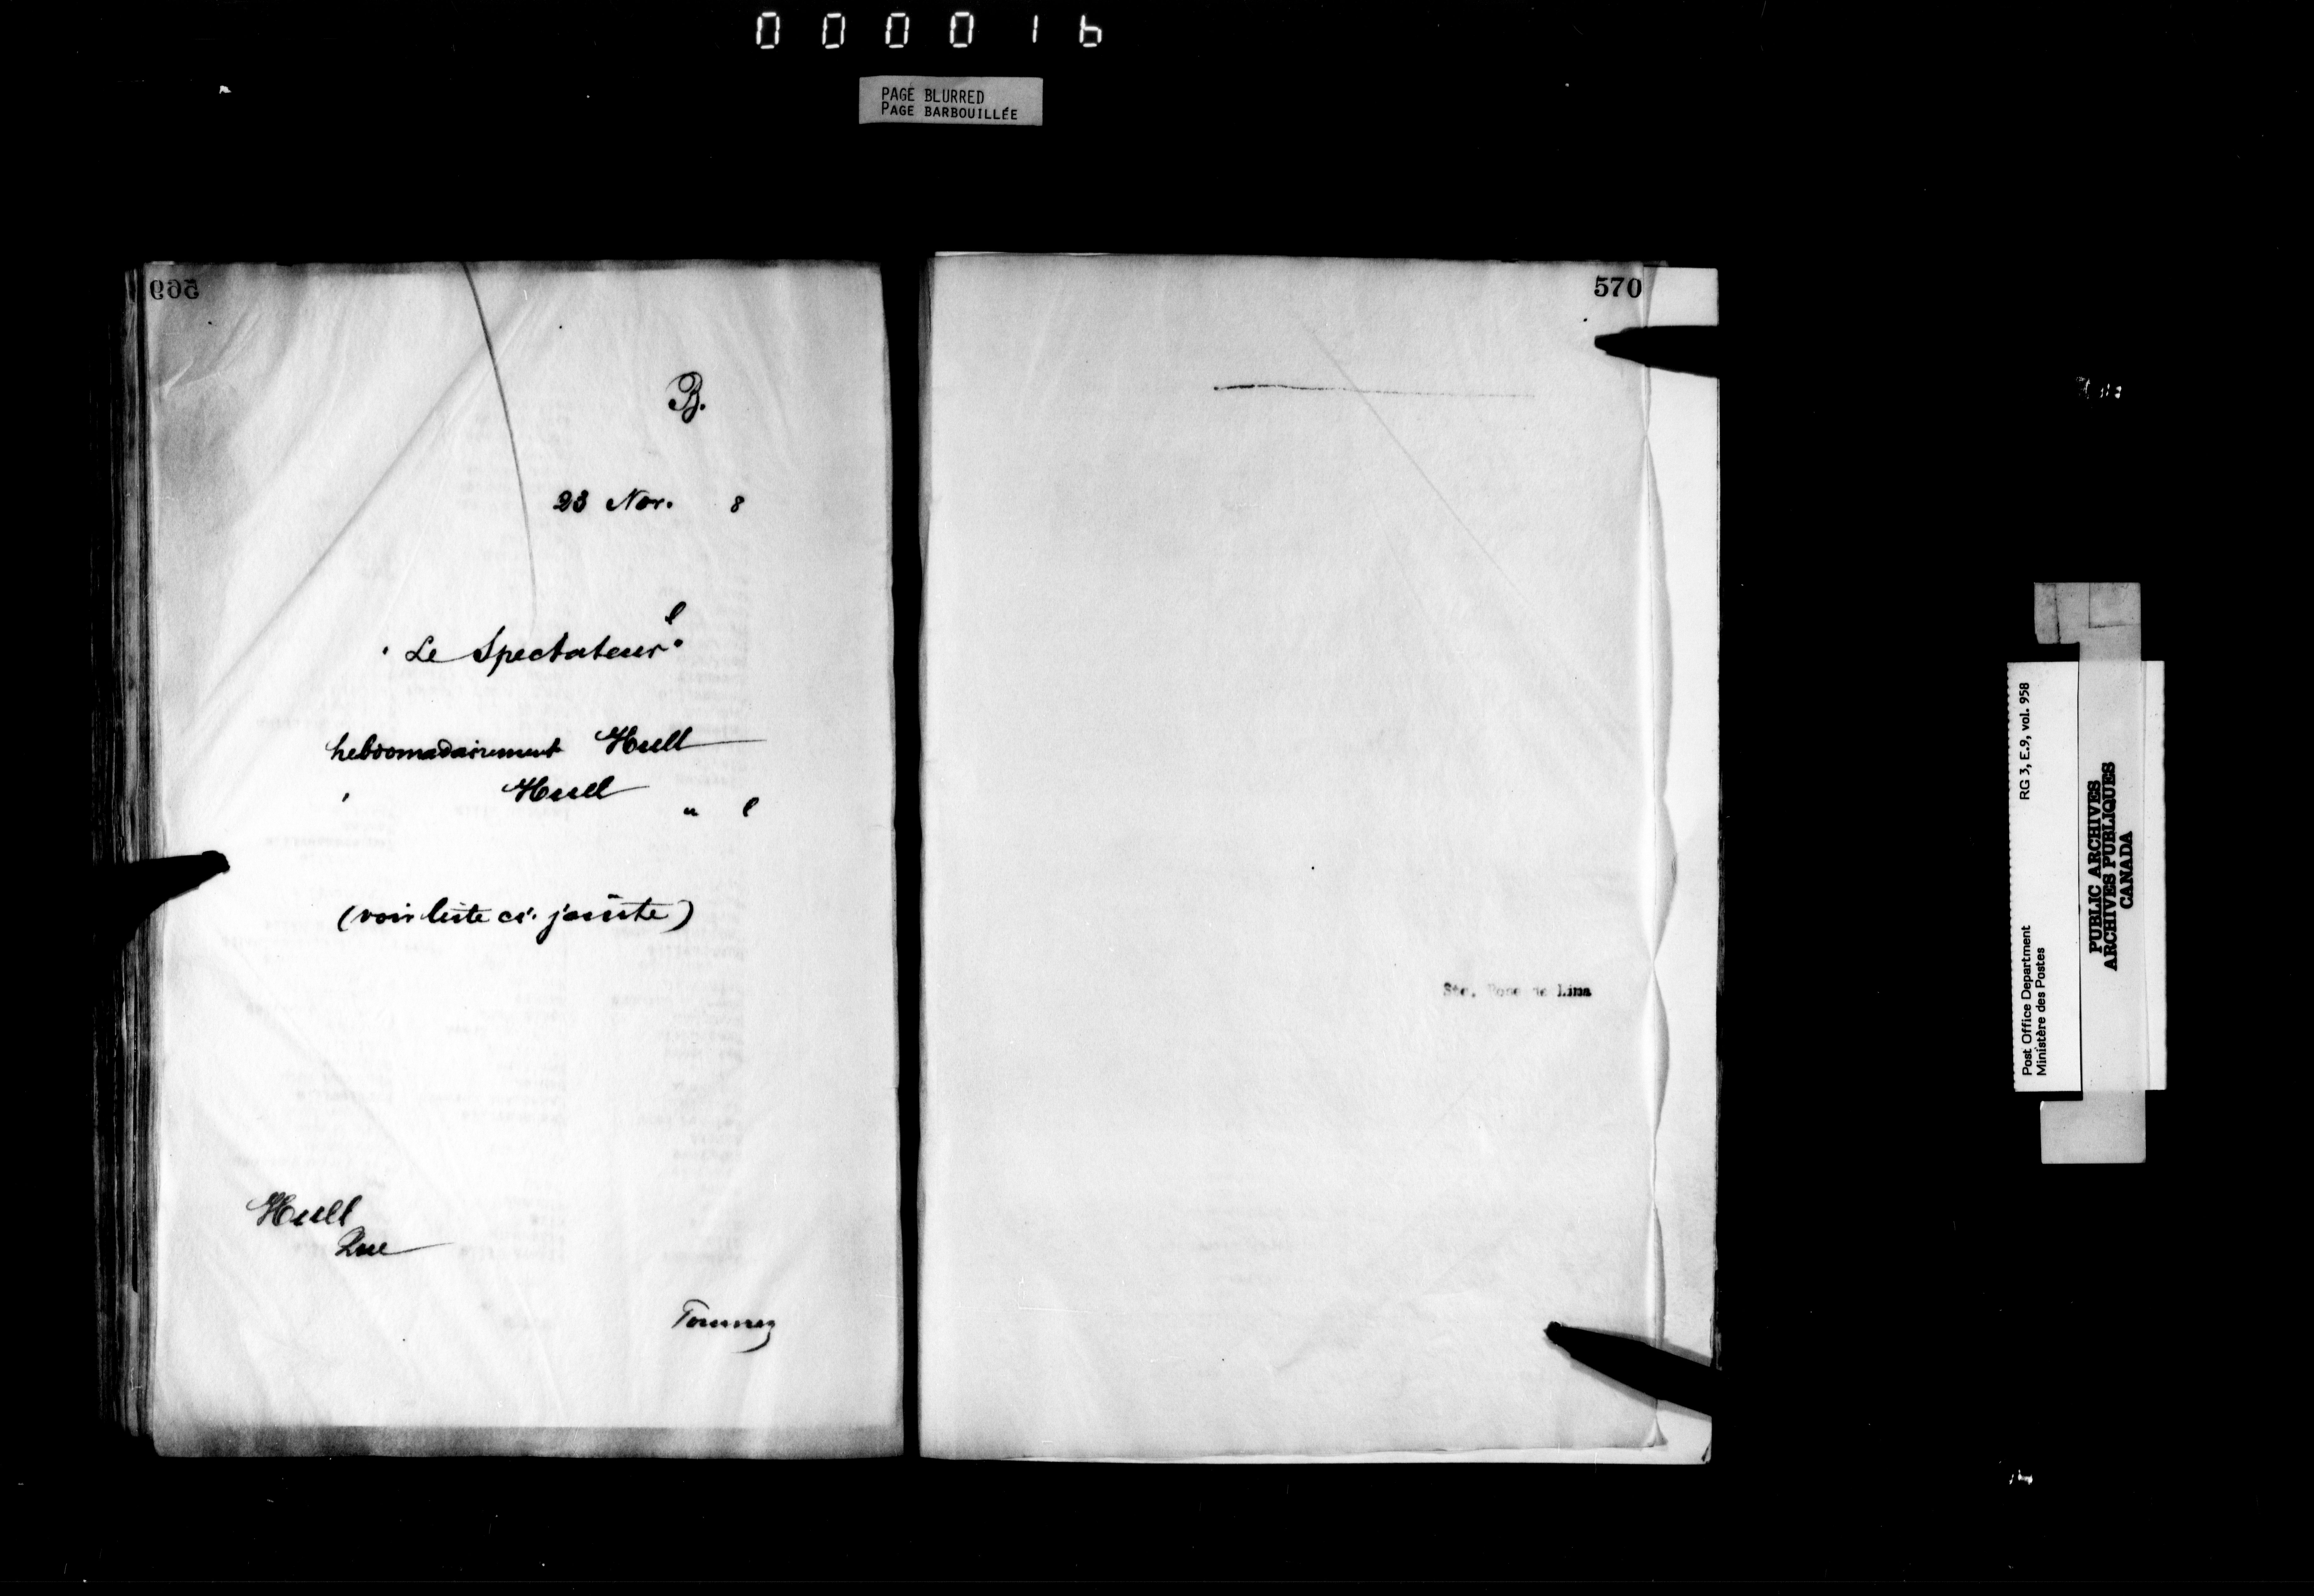 000016
PAGE BLURRED
PAGE BARBOUILLÉE
569
B.
23 Nov. 8
l
"Le Spectateur"
hebdomadairement Hull
' Hull " l
(voir liste ci-jointe)
Hull
Que
570
Ste. Rose de Lima
RG 3, E.9, vol. 958
Post Office Department
Ministère des Postes
PUBLIC ARCHIVES
ARCHIVES PUBLIQUES
CANADA